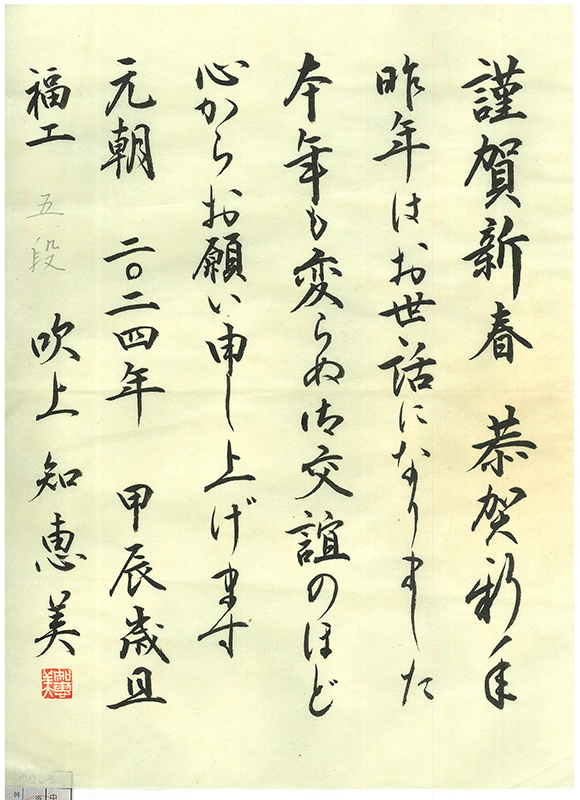 謹賀新春 恭賀新年
昨年はお世話になりました
本年も変らぬ御交誼のほど
心からお願い申し上げます
元朝 二〇二四年 甲辰歳旦
福工 五段 吹上 知恵美
のりしろ